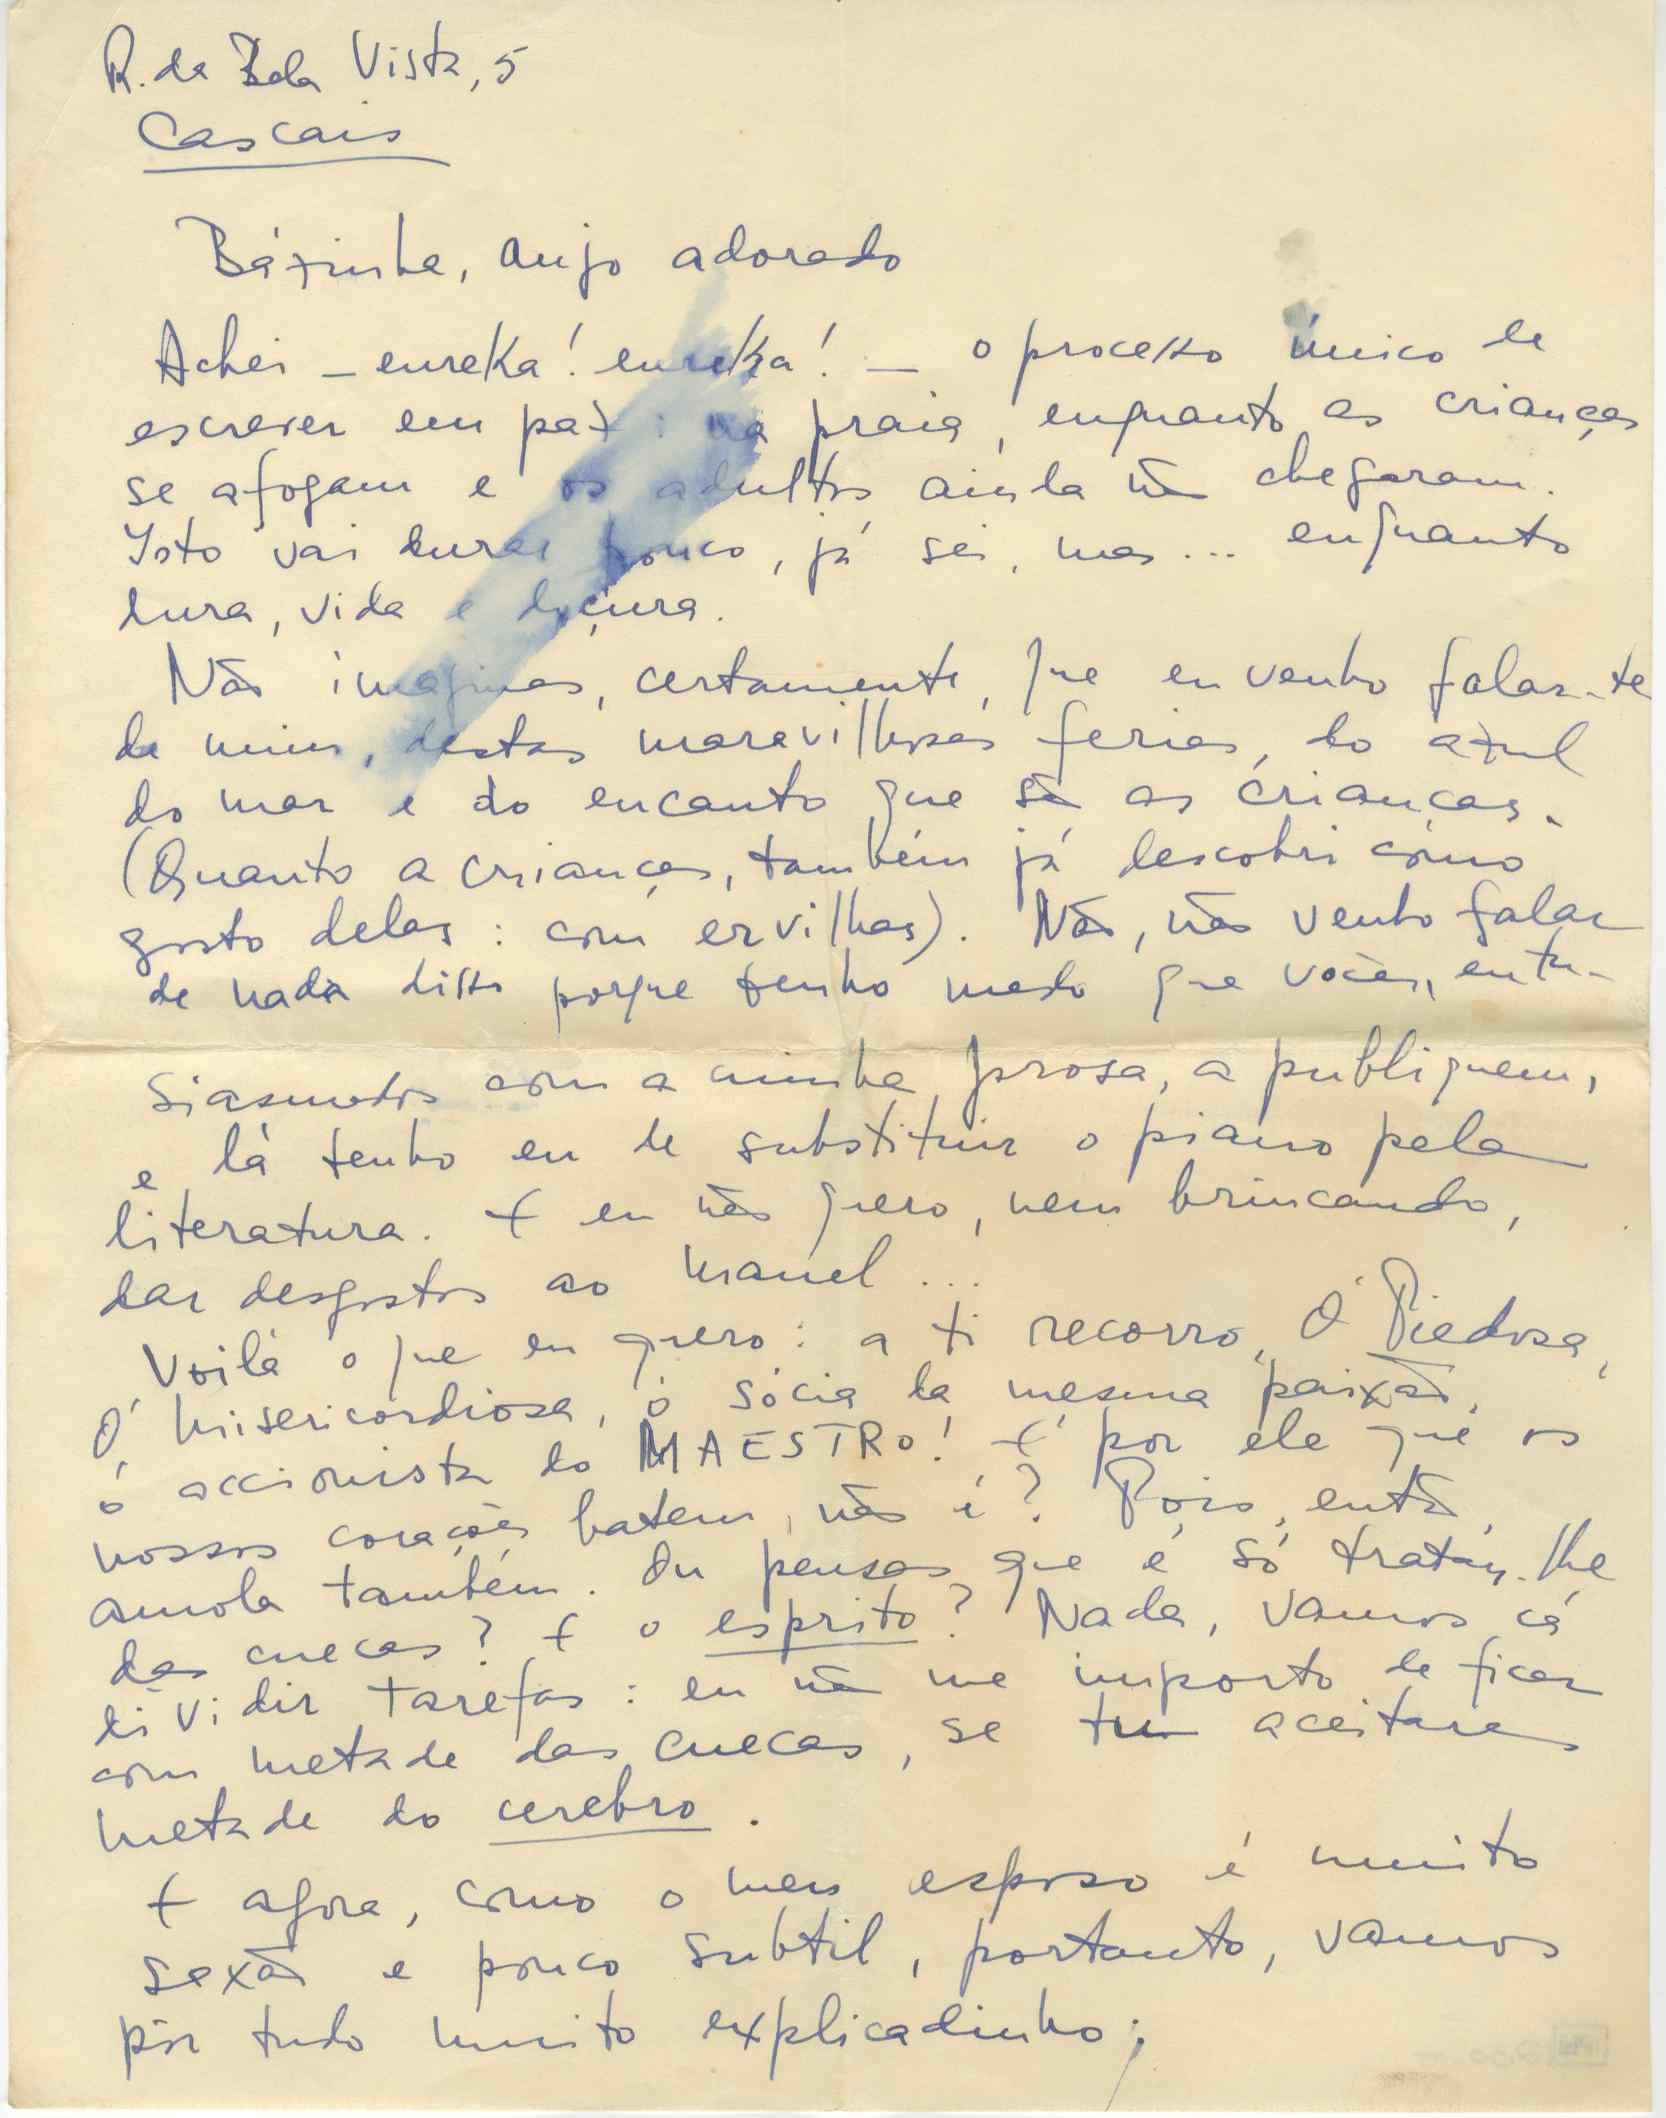 R. da Bela Vista, 5
Cascais
Bázinha, anjo adorado
Achei – eureka! eureka! — o processo único de
escrever em paz: na praia, enquanto as crianças
se afogam e os adultos ainda não chegaram.
Isto vai durar pouco, já sei, mas... enquanto
dura, vida e doçura.
Não imaginas, certamente, que eu venho falar-te
de mim, destas maravilhosas ferias, do azul
do mar e do encanto que são as crianças.
(Quanto a crianças, também já descobri como
gosto delas: com ervilhas). Não, não venho falar
de nada disso porque tenho medo que vocês, entu-
siasmados com a minha prosa, a publiquem,
e lá tenho eu de substituir o piano pela
literatura. E eu não quero, nem brincando,
dar desgostos ao Manel...
Voilà o que eu quero: a ti recorro, Ó Piedosa,
Ó Misericordiosa, ó sócia da mesma paixão,
ó accionista do MAESTRO! É por ele que os
nossos corações batem, não é? Pois, então,
amola também. Ou pensas que é só tratar-lhe
das cuecas? E o esprito? Nada, vamos cá
dividir tarefas: eu não me importo de ficar
com metade das cuecas, se tu aceitares
metade do cerebro.
E agora, como o meu esposo é muito
sexão e pouco subtil, portanto, vamos
pôr tudo muito explicadinho;